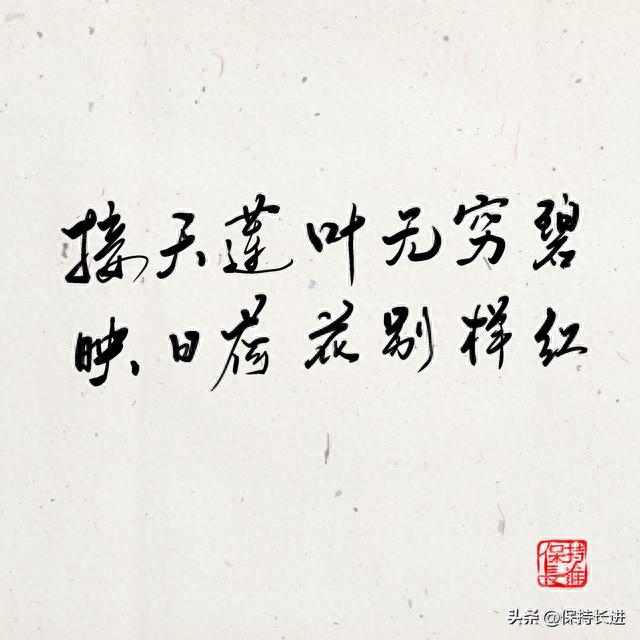 接天莲叶无穷碧
映日荷花别样红
保持长进
头条 @保持长进